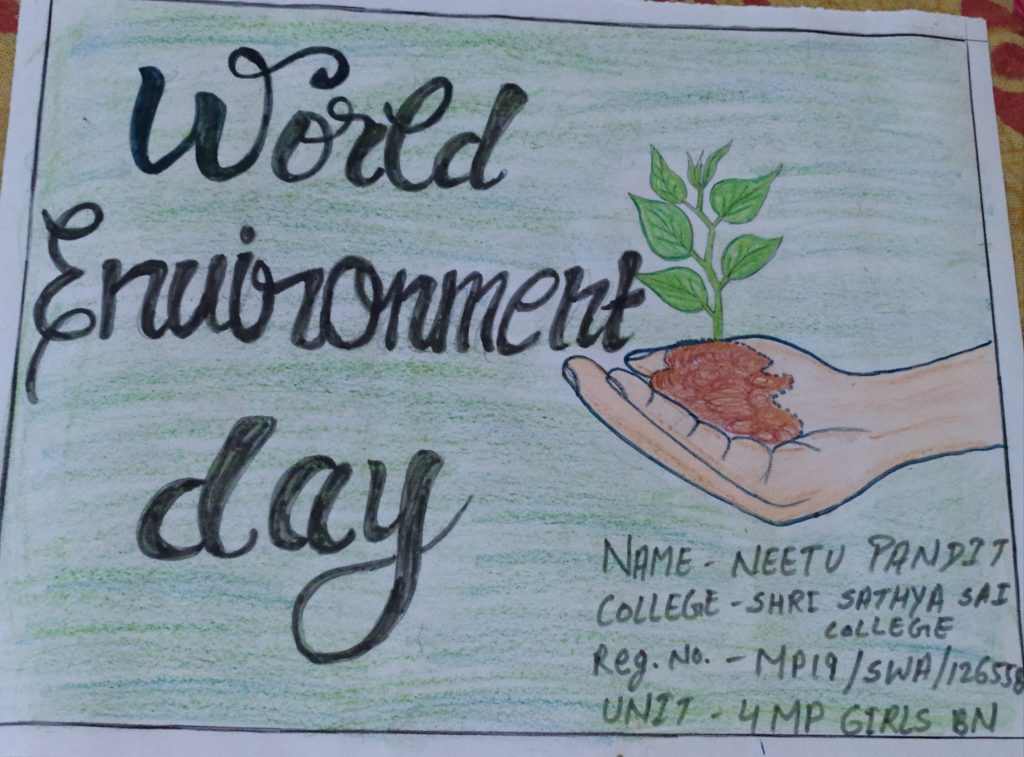 World
Environment
day
NAME - NEETU PANDIT
COLLEGE - SHRI SATHYA SAI
COLLEGE
Reg. No. - MP19/SWA/126558
UNIT - 4 MP GIRLS BN